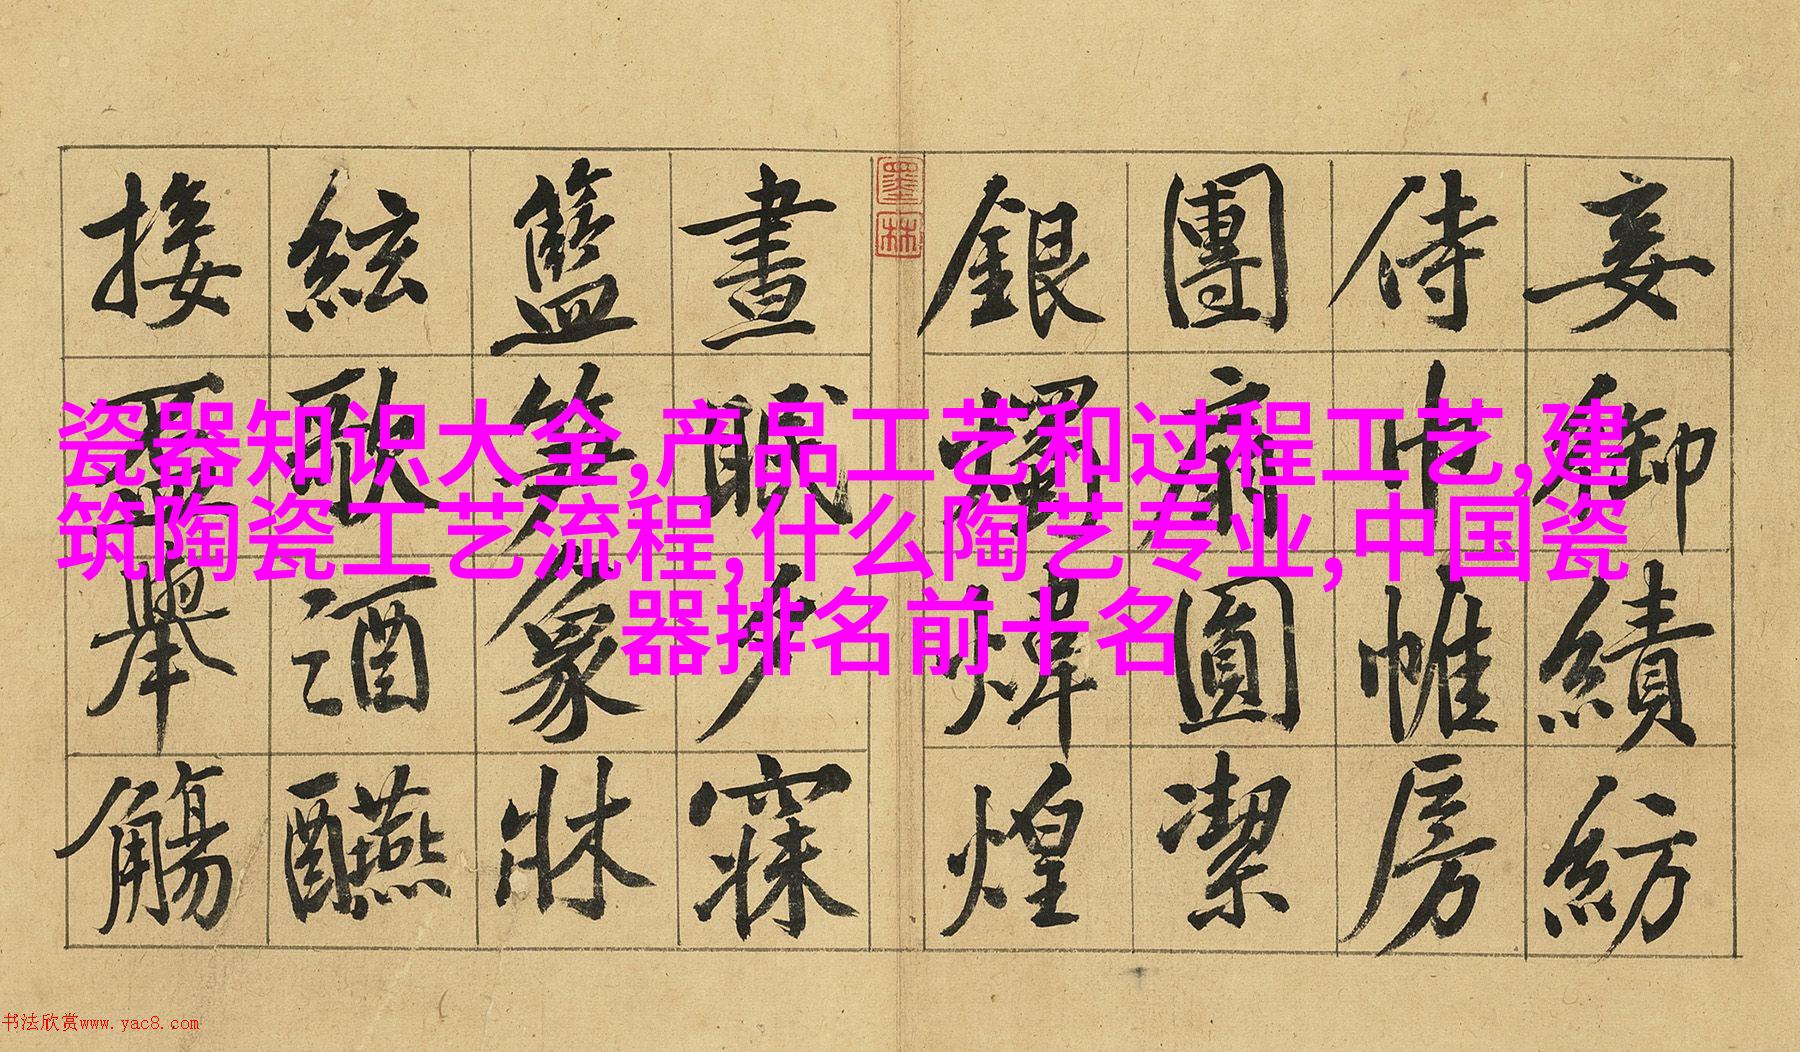 妾御績紡
侍巾帷房
團扇圓潔
銀燭煒煌
墨林
晝眠夕寐
籃笋象牀
絃歌酒醼
接盃舉觴
瓷器知识大全,产品工艺和过程工艺,建
筑陶瓷工艺流程,什么陶艺专业,中国瓷
器排名前十名
书法欣赏www.yac8.com